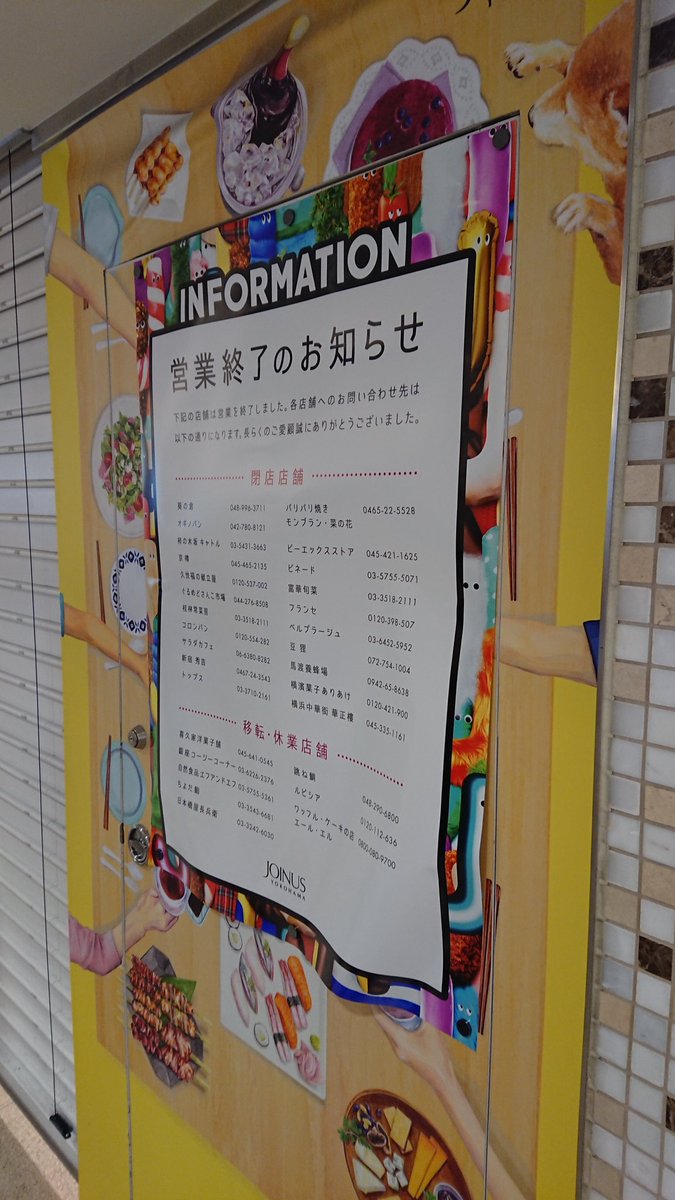 INFORMATION
営業終了のお知らせ
下記の店舗は営業を終了しました。各店舗へのお問い合わせ先は
以下の通りになります。長らくのご愛顧誠にありがとうございました。
閉店店舗
葵の倉 048-996-3711
オギノパン 042-780-8121
柿の木坂 キャトル 03-5431-3663
京樽 045-465-2135
久世福の献立屋 0120-537-002
ぐるめどさんこ市場 044-276-8508
桂林惣菜館 03-3518-2111
コロンバン 0120-554-282
サラダカフェ 06-6380-8282
新宿 秀吉 0467-24-3543
トップス 03-3710-2161
パリパリ焼き
モンブラン・菜の花 0465-22-5528
ピーエックスストア 045-421-1625
ピネード 03-5755-5071
富華旬菜 03-3518-2111
フランセ 0120-398-507
ベルプラージュ 03-6452-5952
豆狸 072-754-1004
馬渡養蜂場 0942-65-8638
横濱菓子ありあけ 0120-421-900
横浜中華街 華正樓 045-335-1161
移転・休業店舗
喜久家洋菓子舗 045-641-0545
銀座コージーコーナー 03-6226-2376
自然食品エフアンドエフ 03-5755-5361
ちよだ鮨 03-3543-6681
日本橋屋長兵衛 03-3242-6030
跳ね鯛 048-290-6800
ルピシア 0120-112-636
ワッフル・ケーキの店
エール・エル 0800-080-9700
JOINUS
YOKOHAMA